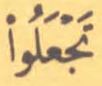 تَجْعَلُوا۟